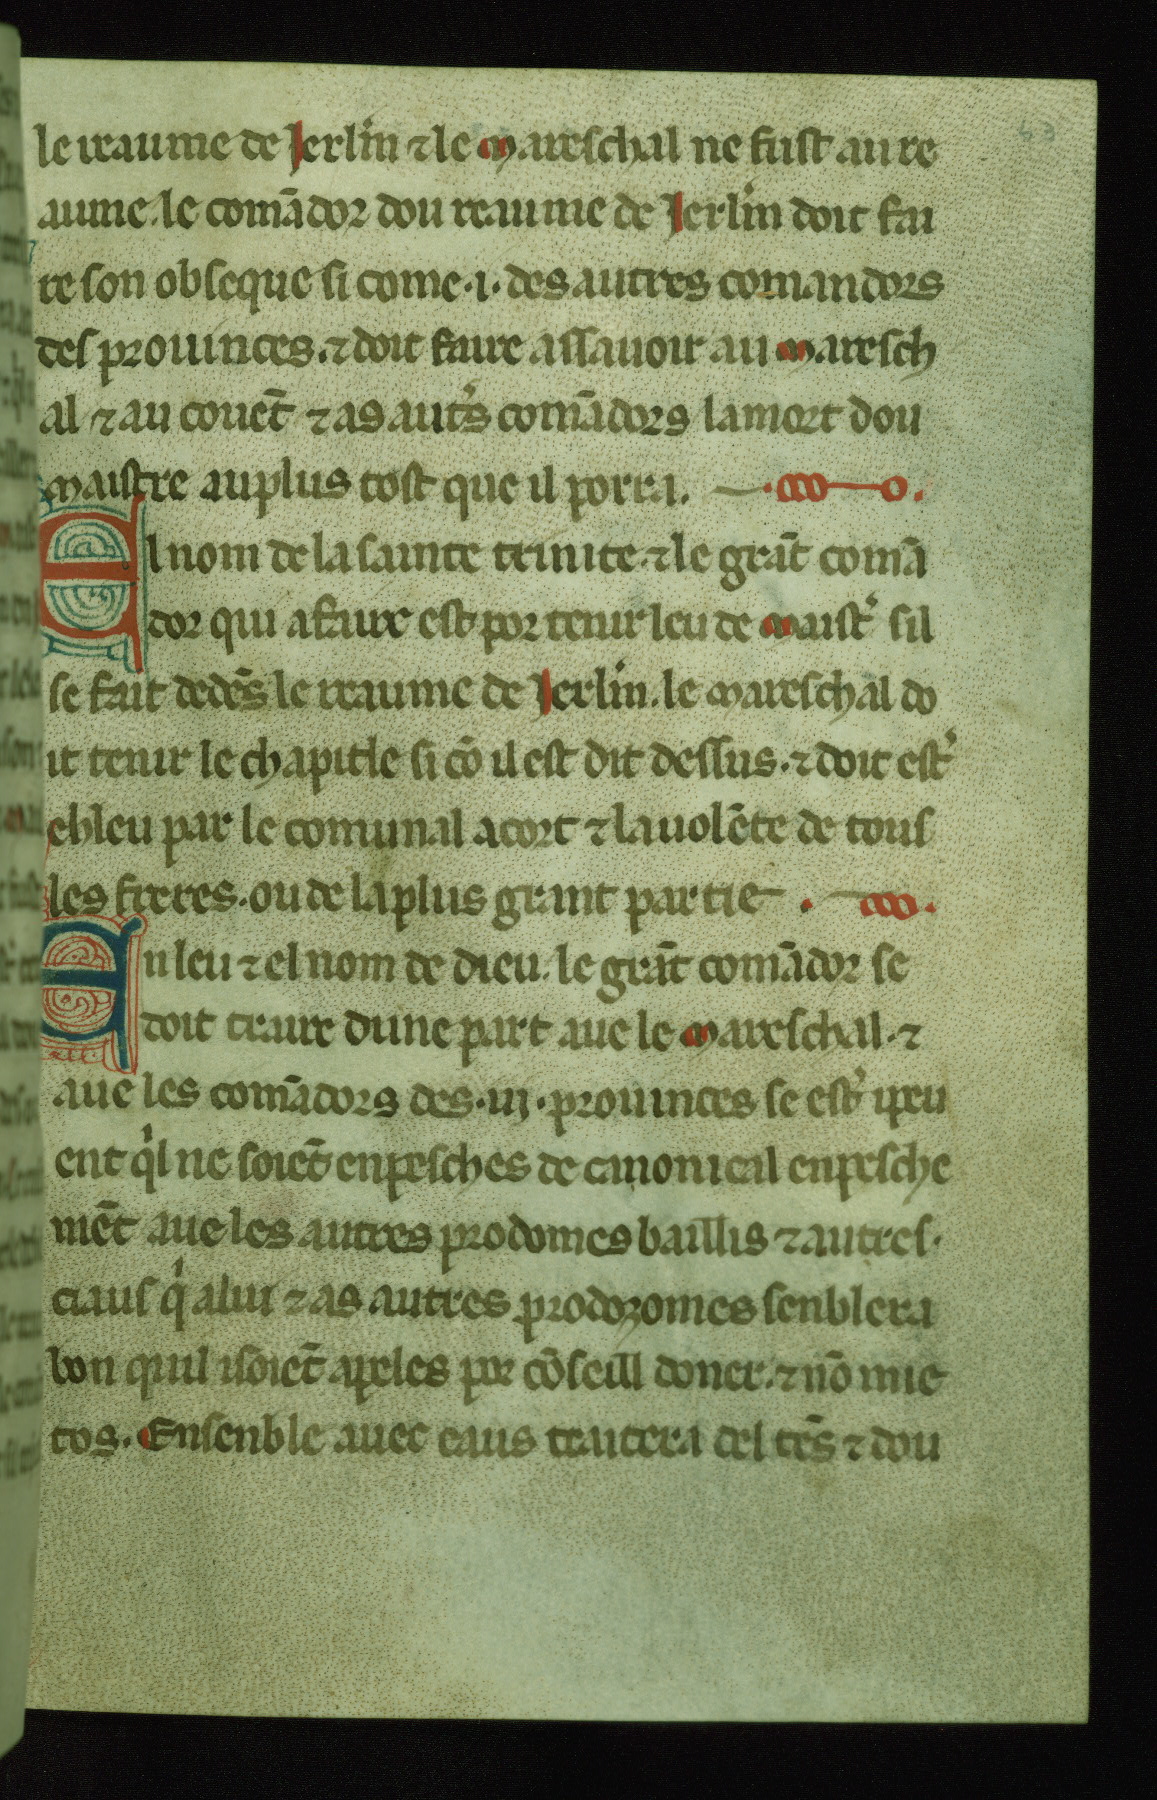 le reaume de Jerlin ⁊ le mareschal ne fust au re
aume. le comādor dou reaume de Jerlin doit fai
re son obseque si come .i. des autres comandors
des prouinces. ⁊ doit faire assauoir au maresch
al ⁊ au couēt ⁊ as aut's comādors la mort dou
maistre au plus tost que il porra.
El nom de la sainte trinite. ⁊ le grāt comā
dor qui a faire est por tenir leu de maist' sil
se fait dedēs le reaume de Jerlin. le mareschal do
it tenir le chapitle si cō il est dit dessus. ⁊ doit est'
ehleu par le comunal acort ⁊ la uolēte de tous
les freres. ou de la plus grant partie.
En leu ⁊ el nom de dieu. le grāt comādor se
doit traire dune part aue le mareschal. ⁊
aue les comādors des .iij. prouinces se est' ipeu
ent q'l ne soiēt enpesches de canonical enpesche
mēt aue les autres prodomes baillis ⁊ autres.
ciaus q' a lui ⁊ as autres prodozomes senblera
bon quil isoiēt apeles por cōseill doner. ⁊ nō mie
tos. Ensenble auec eaus traitera del tēs ⁊ dou